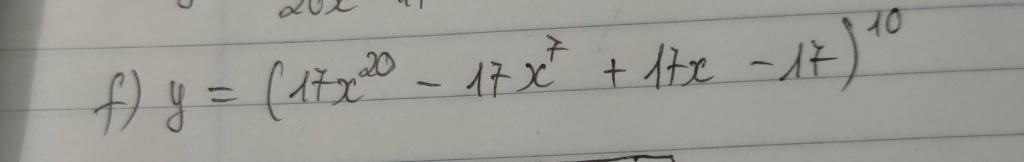 20x
f) y = (17x^20 - 17x^7 + 17x - 17)^10